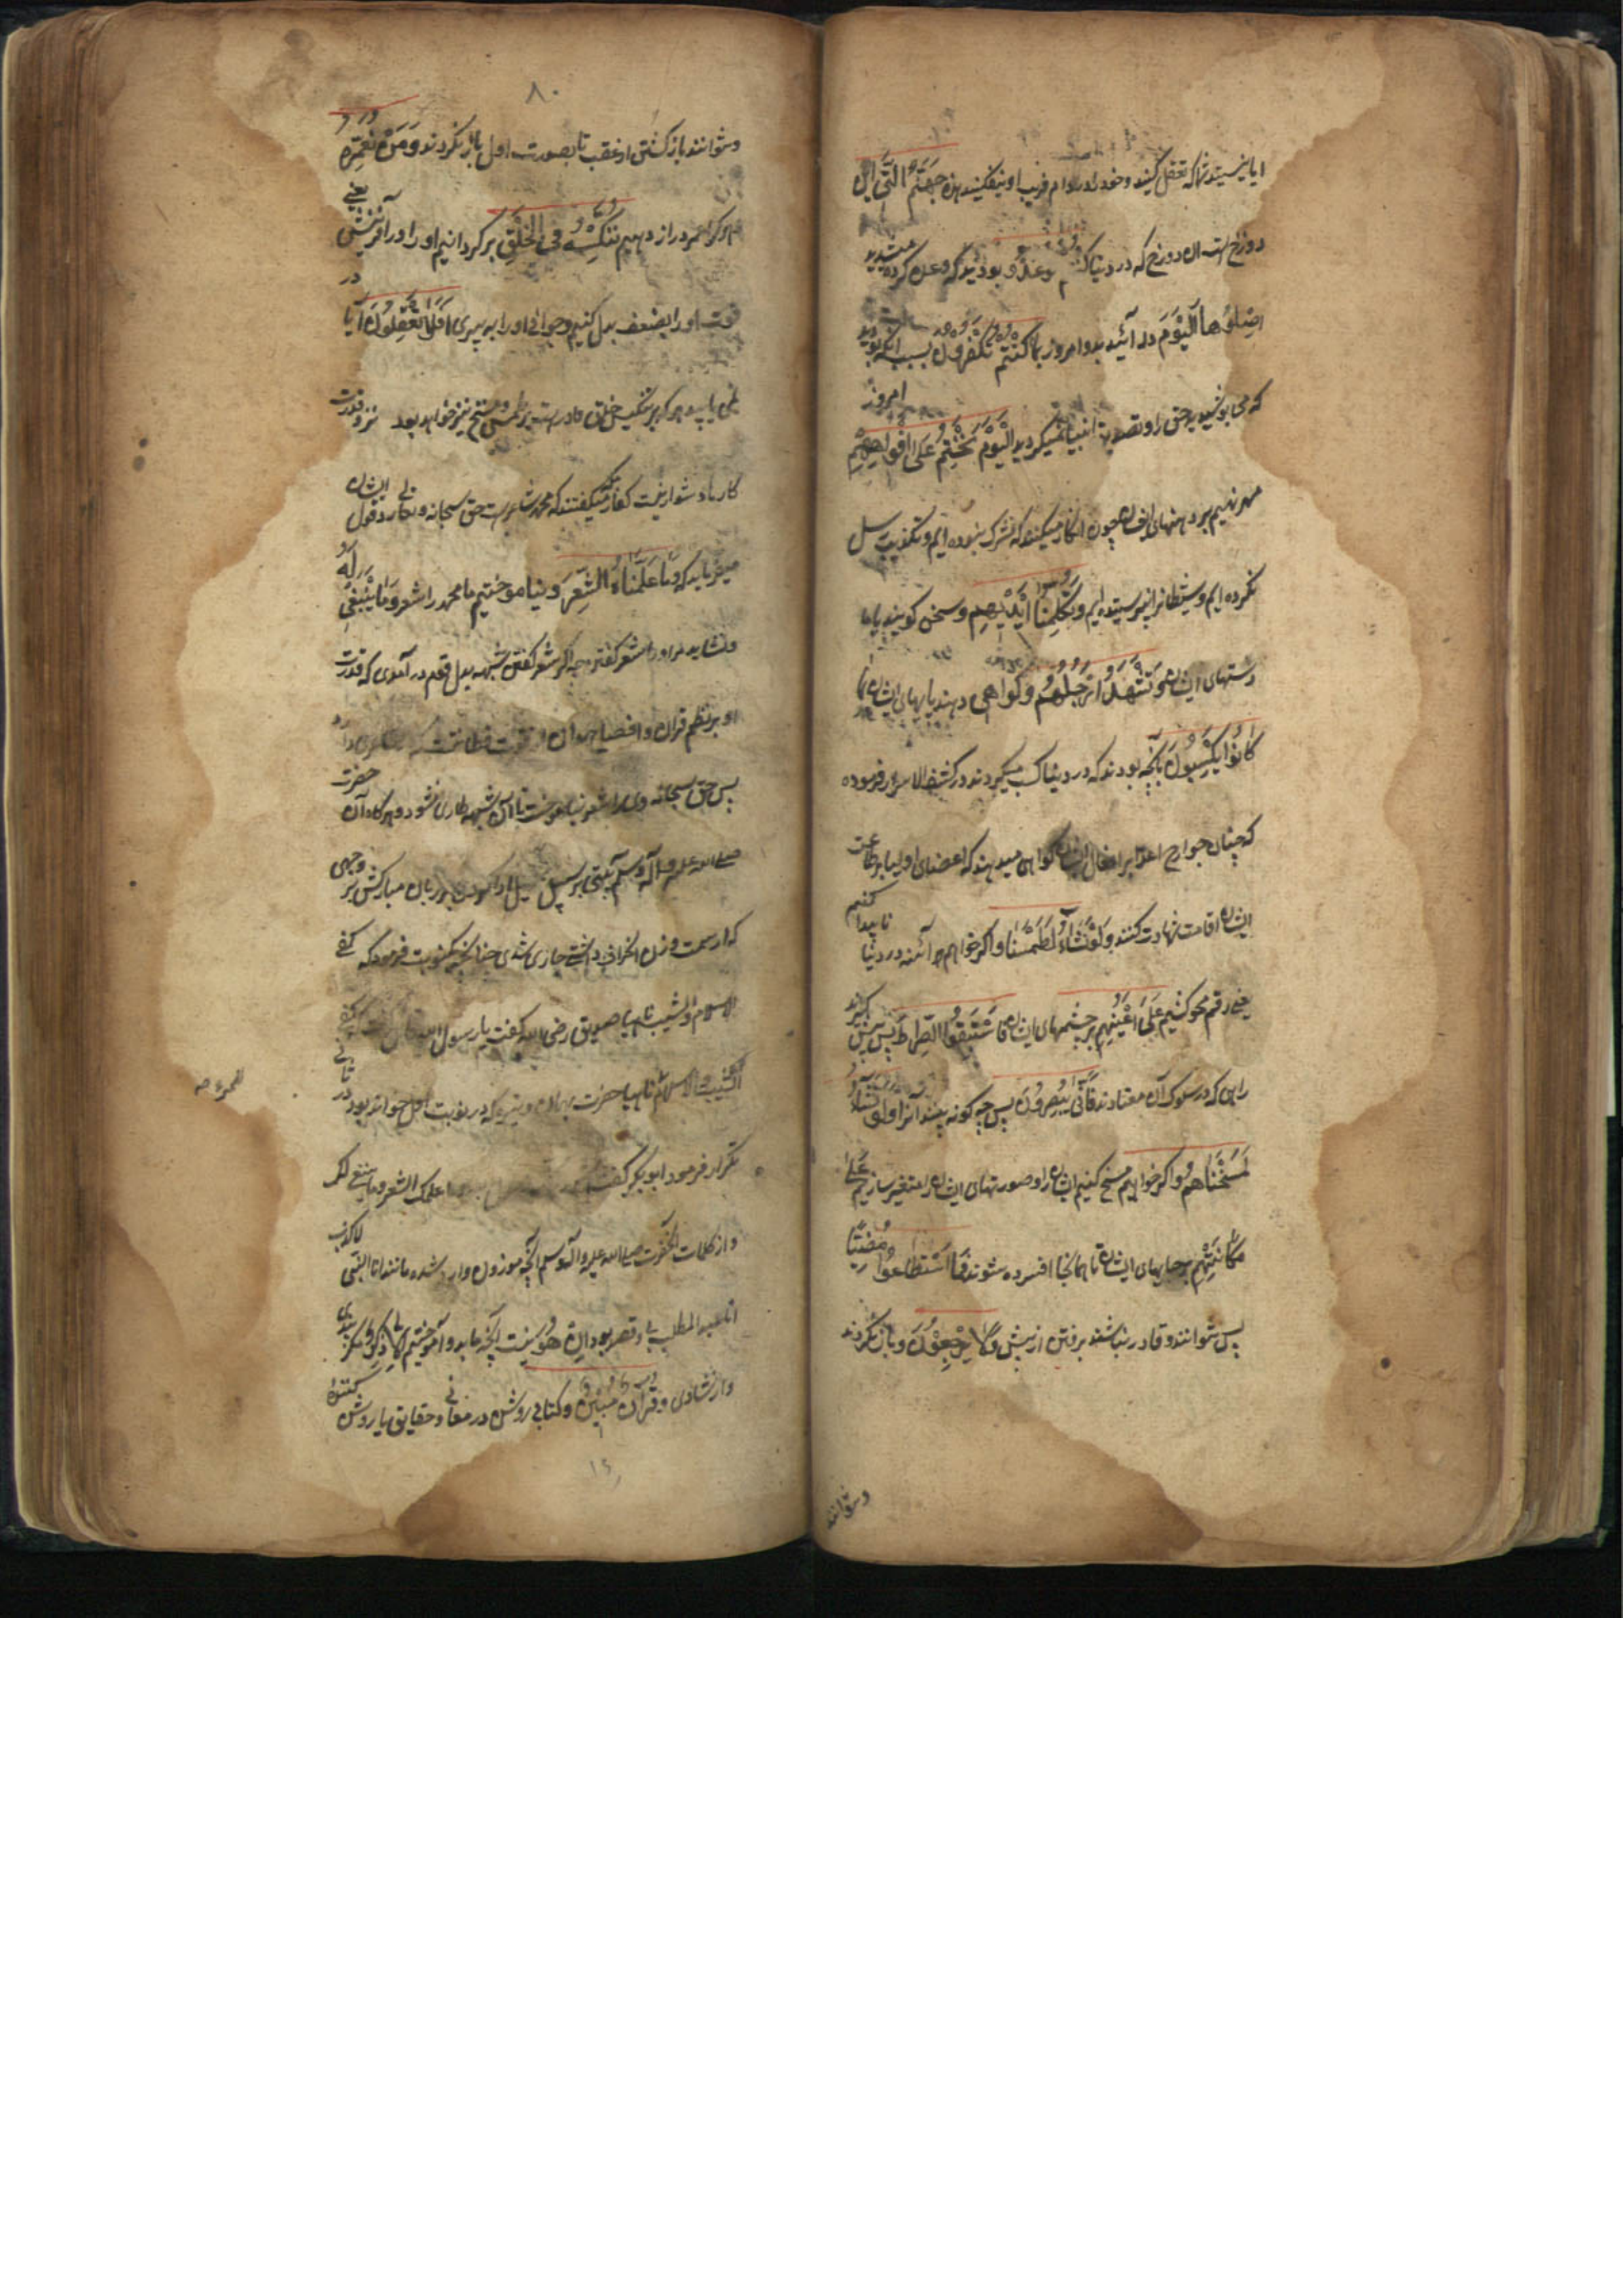 ایا نیستید شما که تعقل کنید و خود را در دام فریب او نیفکنید هذه جَهَنَّمُ الَّتِی این
دوزخ است آن دوزخ که در دنیا کنتم توعدون بودید که وعده کرده میشدید
اصْلَوْهَا الْیَوْمَ در آئید بدو امروز بِمَا کُنْتُمْ تَکْفُرُونَ بسبب آنکه بودید
که می پوشیدید حق را و تصدیق انبیا نمیکردید الْیَوْمَ نَخْتِمُ عَلَی أَفْوَاهِهِمْ امروز
مهر نهیم بر دهنهای ایشان چون انکار میکنند که مشرک نبوده ایم و تکذیب رسل
نکرده ایم و شیطانرا نپرستیده ایم وَتُکَلِّمُنَا أَیْدِیهِمْ و سخن گویند با ما
دستهای ایشان وَتَشْهَدُ أَرْجُلُهُمْ و گواهی دهند پایهای ایشان بِمَا
کَانُوا یَکْسِبُونَ بآنچه بودند که در دنیا کسب میکردند در کشف الاسرار فرموده
که چنان جوارح اعدا بر افعال ایشان گواهی میدهند که اعضای اولیا بر طاعت
ایشان اقامت شهادت کنند وَلَوْ نَشَاءُ لَطَمَسْنَا و اگر خواهیم هر آئنه در دنیا ناپیدا کنیم
یعنی رقم محو کشیم عَلَی أَعْیُنِهِمْ بر چشمهای ایشان فَاسْتَبَقُوا الصِّرَاطَ پس پیش گیرند
راهی که در سلوک آن معتادند فَأَنَّی یُبْصِرُونَ پس چه گونه بینند آنرا وَلَوْ نَشَاءُ
لَمَسَخْنَاهُمْ و اگر خواهیم مسخ کنیم ایشان را و صورتهای ایشان را متغیر سازیم عَلَی
مَکَانَتِهِمْ بر جایهای ایشان تا همانجا افسرده شوند فَمَا اسْتَطَاعُوا مُضِیًّا
پس نتوانند و قادر نباشند برفتن از پیش وَلَا یَرْجِعُونَ و باز نگردند
و نتوانند
۸۰
و نتوانند باز گشتن از عقب تا بصورت اول باز نگردند وَمَنْ نُعَمِّرْهُ
هر کرا عمر دراز دهیم نُنَکِّسْهُ فِی الْخَلْقِ برگردانیم او را در آفرینش یعنی
قوت او را بضعف بدل کنیم و جوانی او را به پیری أَفَلَا یَعْقِلُونَ آیا در
نمی یابید هر که بر تنکیس خلق قادر است بر طمس و مسخ نیز خواهد بود نزد قدرت
کارها دشوار نیست کفار مکه میگفتند که محمد شاعر است حق سبحانه و تعالی رد قول ایشان
میفرماید که وَمَا عَلَّمْنَاهُ الشِّعْرَ و نیاموختیم ما محمد را شعر وَمَا یَنْبَغِی لَهُ
و نشاید مر او را شعر گفتن چه اگر شعر گفتی شبهه بدل قوم در آمدی که قدرت
او بر نظم قرآن و افصاح آن از قوت فطانت
پس حق سبحانه وی را شعر نیاموخت تا این شبهه طاری نشود و هرگاه آن حضرت
صلی الله علیه و آله و سلم بیتی بر سبیل بر زبان مبارکش بر وجهی
که از سمت وزن انحراف داشتی جاری شدی چنانچه یکنوبت فرمود که کفی
الاسلام و الشیب ناهیا صدیق رضی الله گفت یا رسول الله کفی
الشیب و الاسلام ناهیا حضرت بهمان وتیره که در نوبت اول خوانده بود در ثانی
تکرار فرمود ابوبکر گفت علمک الشعر وما ینبغی لک
و از کلمات آنحضرت صلی الله علیه و آله و سلم آنچه موزون وارد شده مانند انا النبی لا کذب
انا عبد المطلب بی قصد بود إِنْ هُوَ نیست آنچه ما بدو آموختیم إِلَّا ذِکْرٌ مگر پندی
و ارشادی وَقُرْآنٌ مُبِینٌ و کتابی روشن در معانی و حقایق یا روشن کننده